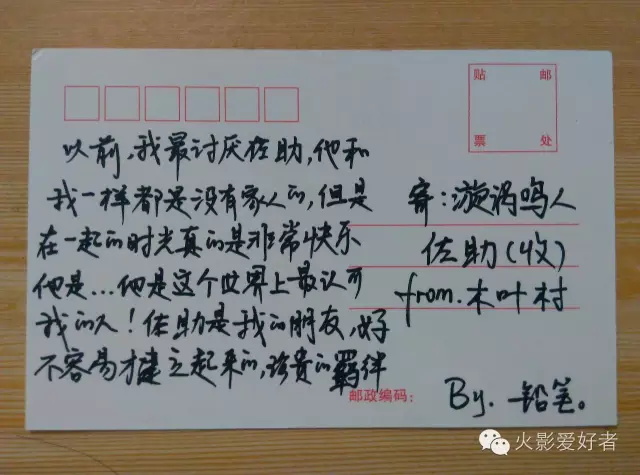 贴 邮
票 处
以前,我最讨厌佐助,他和
我一样都是没有家人的,但是
在一起的时光真的是非常快乐
他是...他是这个世界上最认可
我的人!佐助是我的朋友,好
不容易才建立起来的,珍贵的羁绊
寄:漩涡鸣人
佐助(收)
from.木叶村
邮政编码:
By.铅笔。
火影爱好者